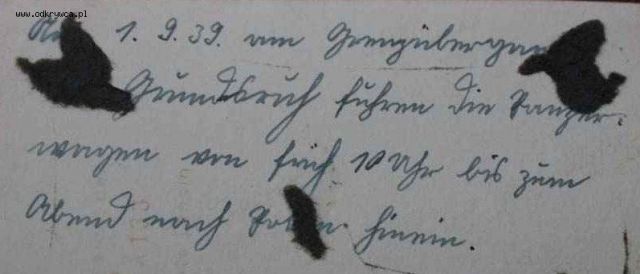 www.odkrywca.pl
1. 9. 39. am Grenzübergan
Grundsruh fuhren die Panzer-
wagen von früh 10 Uhr bis zum
Abend nach Polen hinein.